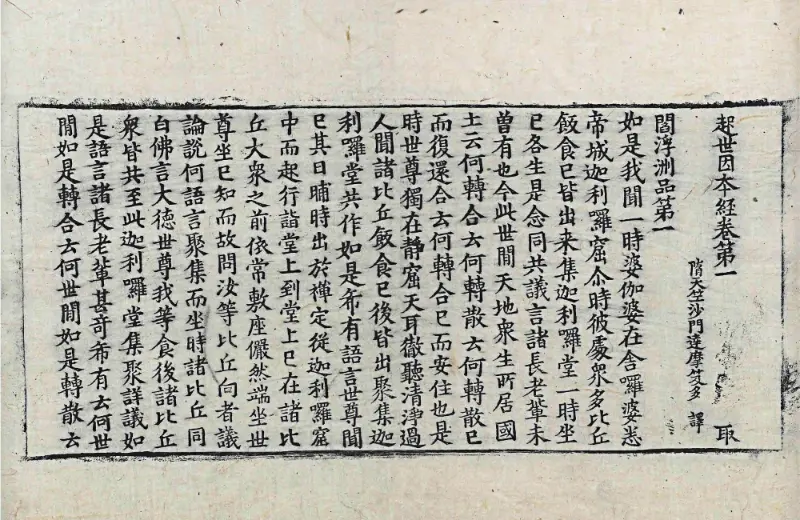 起世因本經卷第一 取
隋天竺沙門達摩笈多 譯
閻浮洲品第一
如是我聞一時婆伽婆在舍羅婆悉
帝城迦利囉窟尒時彼處衆多比丘
飯食已皆出来集迦利囉堂一時坐
已各生是念同共議言諸長老輩未
曽有也今此世間天地衆生所居國
土云何轉合云何轉散云何轉散已
而復還合云何轉合已而安住也是
時世尊獨在静窟天耳徹聽清淨過
人聞諸比丘飯食已後皆出聚集迦
利囉堂共作如是希有語言世尊聞
已其日晡時出於禪定從迦利囉窟
中而起行詣堂上到堂上已在諸比
丘大衆之前依常敷座儼然端坐世
尊坐已知而故問汝等比丘向者議
論說何語言聚集而坐時諸比丘同
白佛言大德世尊我等食後諸比丘
衆皆共至此迦利囉堂集聚詳議如
是語言諸長老輩甚奇希有云何世
間如是轉合云何世間如是轉散云